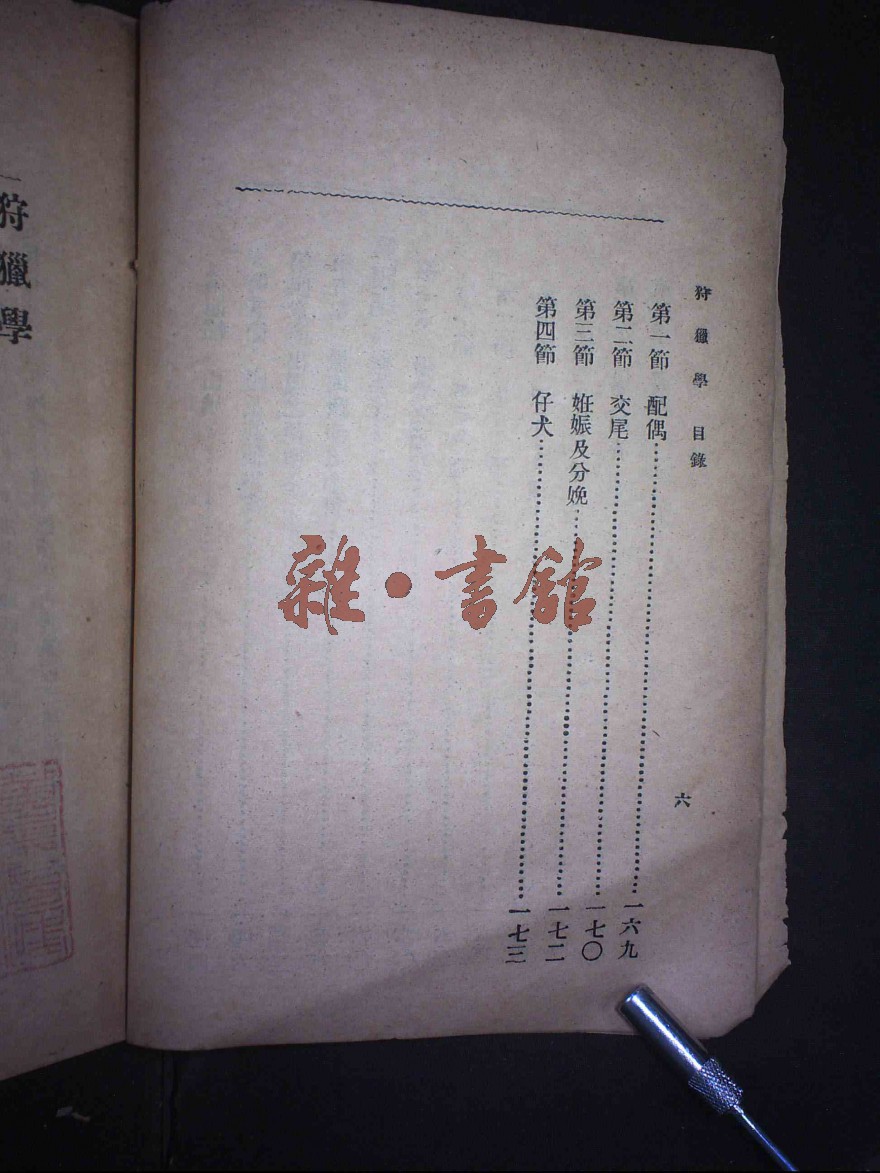 狩獵學 目錄
六
第一節 配偶……一六九
第二節 交尾……一七〇
第三節 姙娠及分娩……一七二
第四節 仔犬……一七三
狩獵學
雜·書館